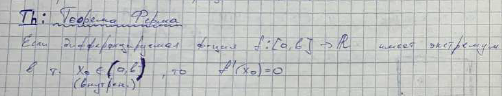 Th: Теорема Ферма
Если дифференцируемая функция f: [a, b] → ℝ имеет экстремум
в т. x₀ ∈ (a, b), то f'(x₀) = 0
(внутрен.)